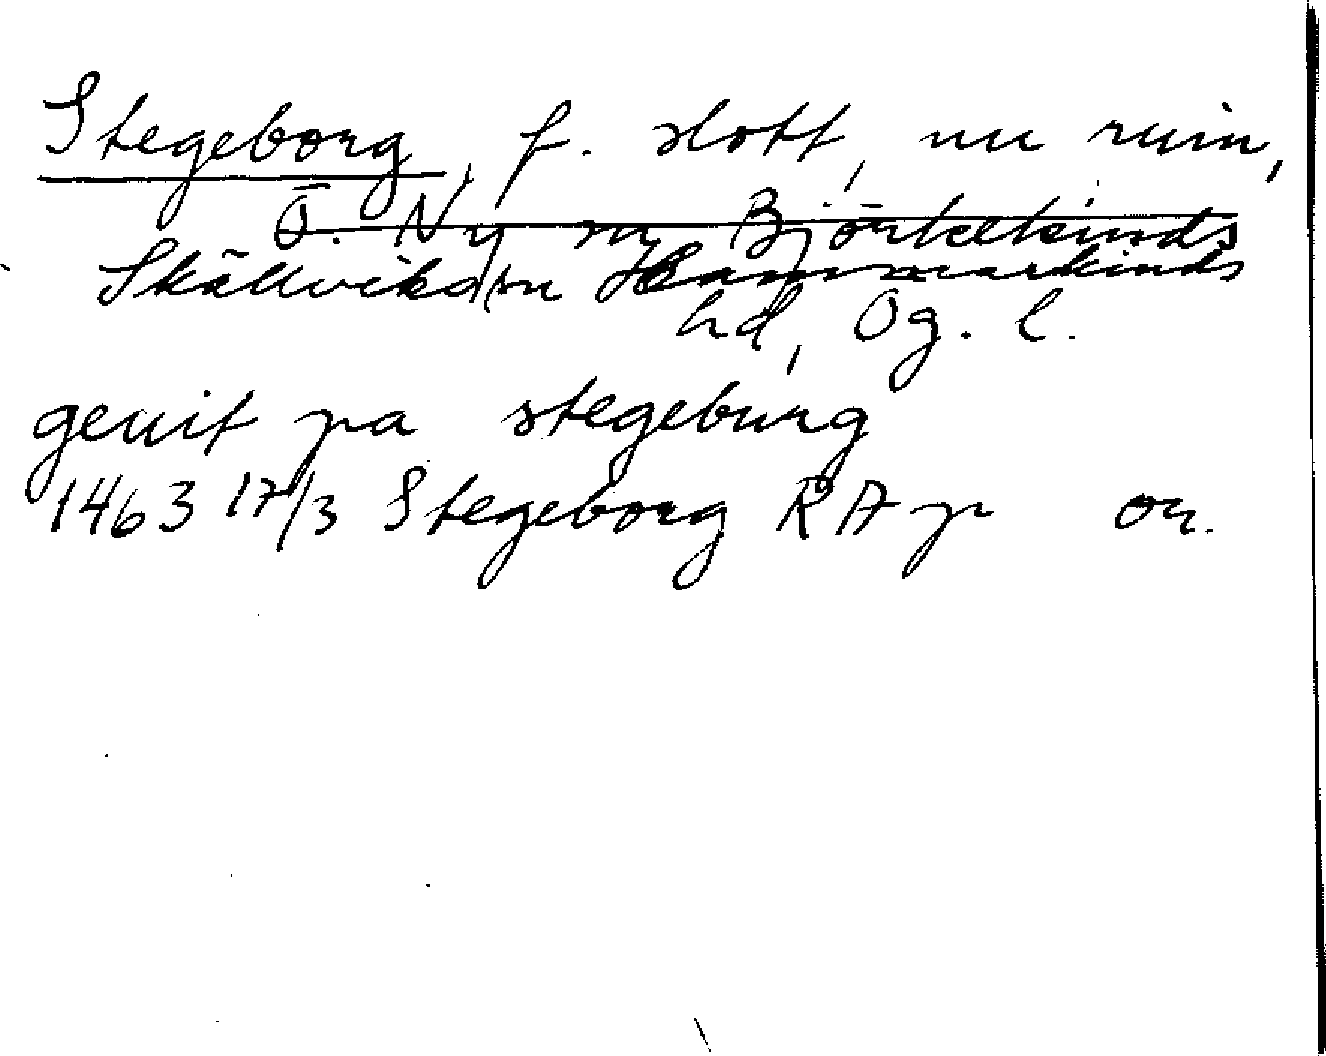 Stegeborg, f. slott, nu ruin,
Ö. Ny sn Björkekinds
Skällviks sn Hammarkinds
hd, Ög. l.
geuit pa stegeburg
1463 17/3 Stegeborg RAp or.